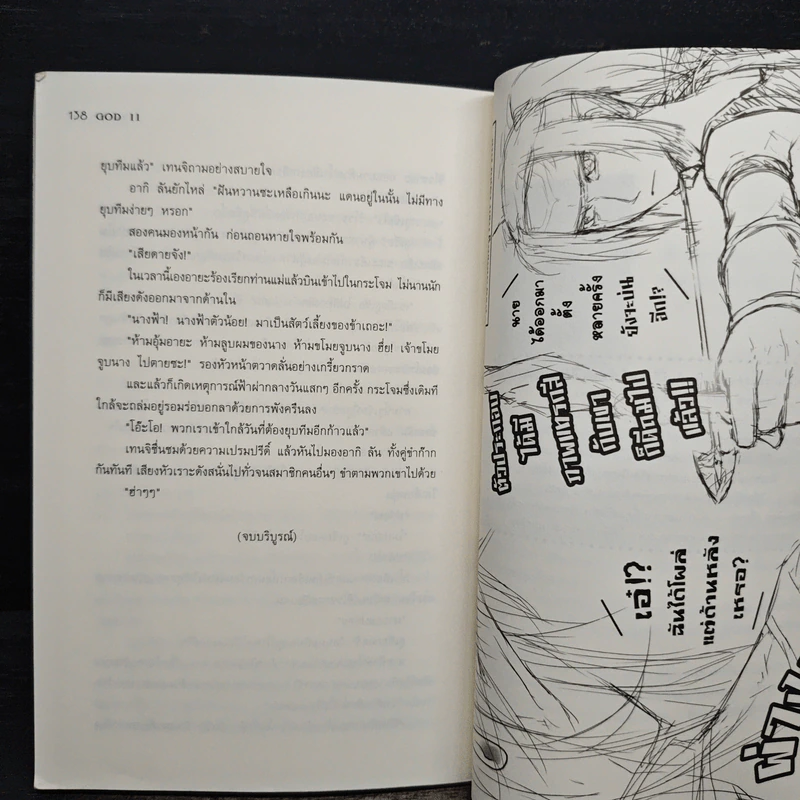 138 GOD 11
ยุบทีมแล้ว" เทนจิถามอย่างสบายใจ
อากิ ลันยักไหล่ "ฝันหวานซะเหลือเกินนะ แดนอยู่ในนั้น ไม่มีทาง
ยุบทีมง่ายๆ หรอก"
สองคนมองหน้ากัน ก่อนถอนหายใจพร้อมกัน
"เสียดายจัง!"
ในเวลานี้เองอายะร้องเรียกท่านแม่แล้วบินเข้าไปในกระโจม ไม่นานนัก
ก็มีเสียงดังออกมาจากด้านใน
"นางฟ้า! นางฟ้าตัวน้อย! มาเป็นสัตว์เลี้ยงของข้าเถอะ!"
"ห้ามอุ้มอายะ ห้ามลูบผมของนาง ห้ามขโมยจูบนาง ฮึ่ย! เจ้าขโมย
จูบนาง ไปตายซะ!" รองหัวหน้าตวาดลั่นอย่างเกรี้ยวกราด
และแล้วก็เกิดเหตุการณ์ฟ้าผ่ากลางวันแสกๆ อีกครั้ง กระโจมซึ่งเดิมที
ใกล้จะถล่มอยู่รอมร่อบอกลาด้วยการพังครืนลง
"โอ๊ะโอ! พวกเราเข้าใกล้วันที่ต้องยุบทีมอีกก้าวแล้ว"
เทนจิชื่นชมด้วยความเปรมปรีดิ์ แล้วหันไปมองอากิ ลัน ทั้งคู่ขำก๊าก
กันทันที เสียงหัวเราะดังสนั่นไปทั่วจนสมาชิกคนอื่นๆ ขำตามพวกเขาไปด้วย
"ฮ่าๆๆ"
(จบบริบูรณ์)
นาย
ได้ออกมา
ตั้ง
หลายครั้ง
ยังจะบ่น
อีก!?
ตัวประกอบ
ได้มี
ภาพแค่นี้
กับเขา
ก็ดีถมไป
แล้ว!!
เอ๋!?
ฉันได้โผล่
แต่ด้านหลัง
เหรอ?